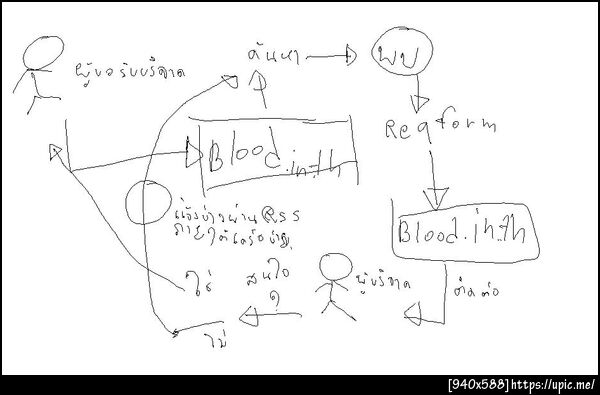 ผู้ขอรับบริจาค
ค้นหา
พบ
Req form
Blood.in.th
แจ้งข่าวผ่าน RSS
ภายใต้เครือข่าย
Blood.in.th
ใช่
สนใจ
?
ผู้บริจาค
ติดต่อ
ไม่
[940x588]https://upic.me/